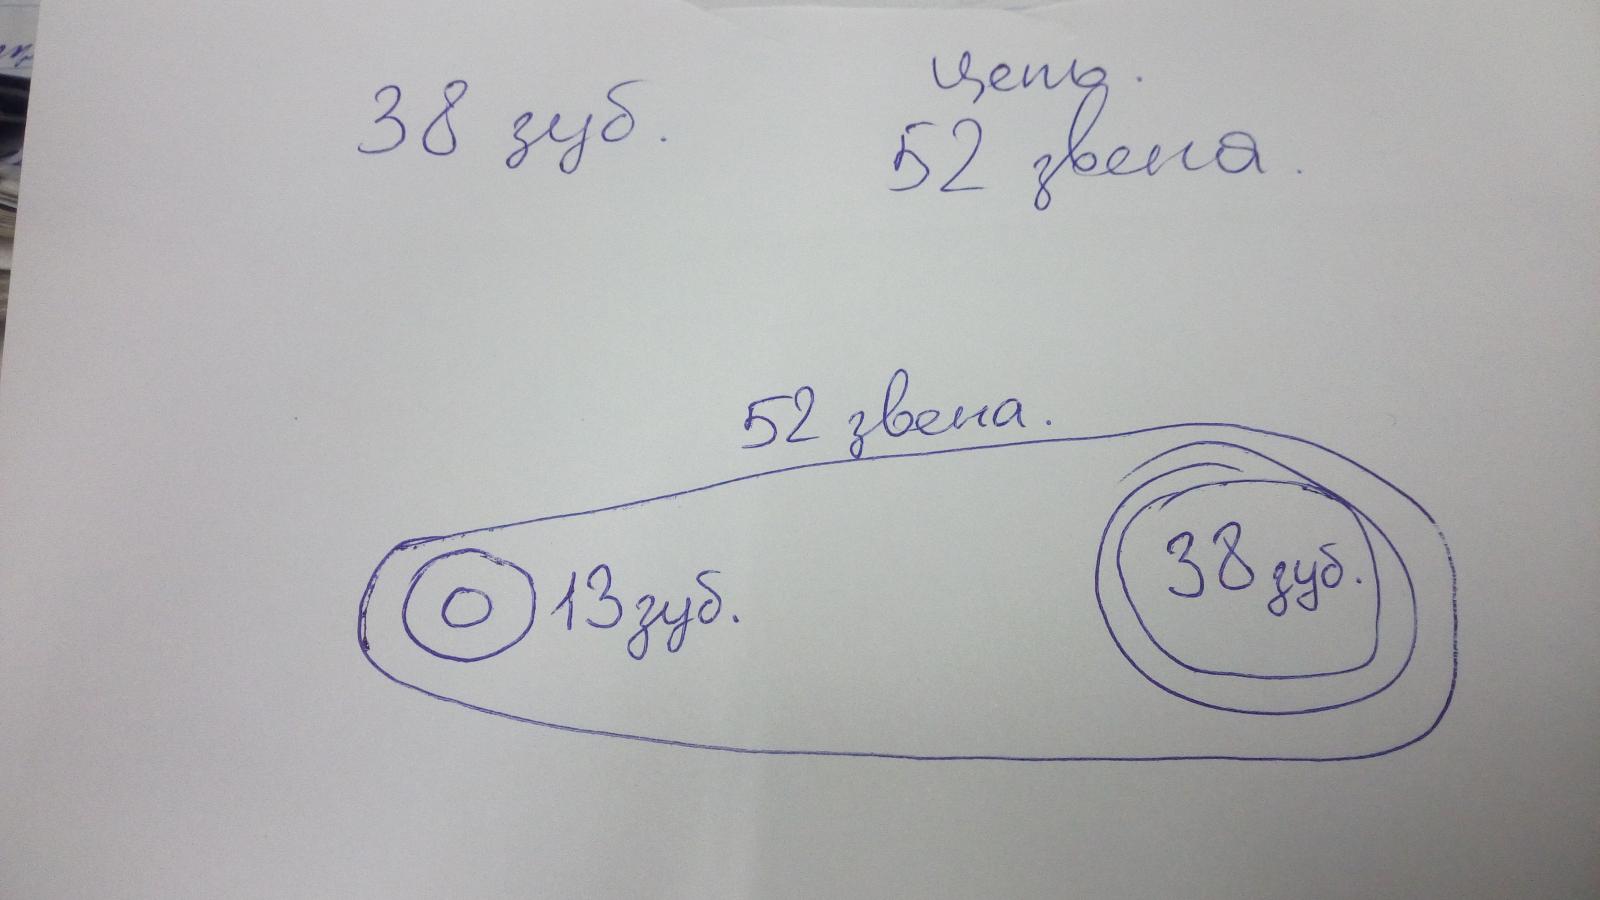 38 зуб.
цепь.
52 звена.
52 звена.
13 зуб.
38 зуб.